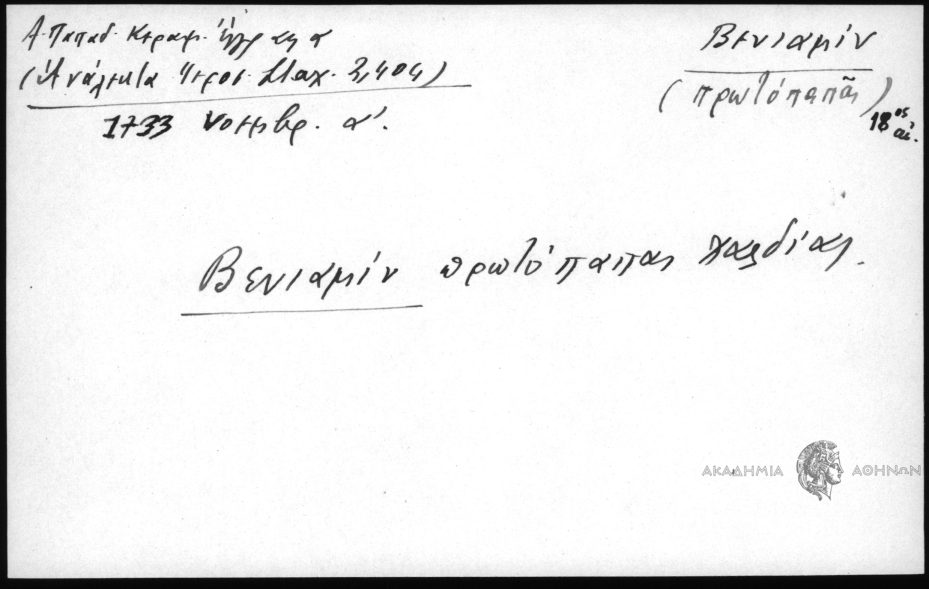 Α. Παπαδ. Κεραμ. Ἔγγραφα
(Ἀνάλεκτα Ἱεροσ. Σταχ. 3,404)
1733 Νοεμβρ. α΄.
Βενιαμίν
(πρωτόπαπᾶς)
18ος αἰ.
Βενιαμίν πρωτόπαπας Χαλδίας.
ΑΚΑΔΗΜΙΑ ΑΘΗΝΩΝ